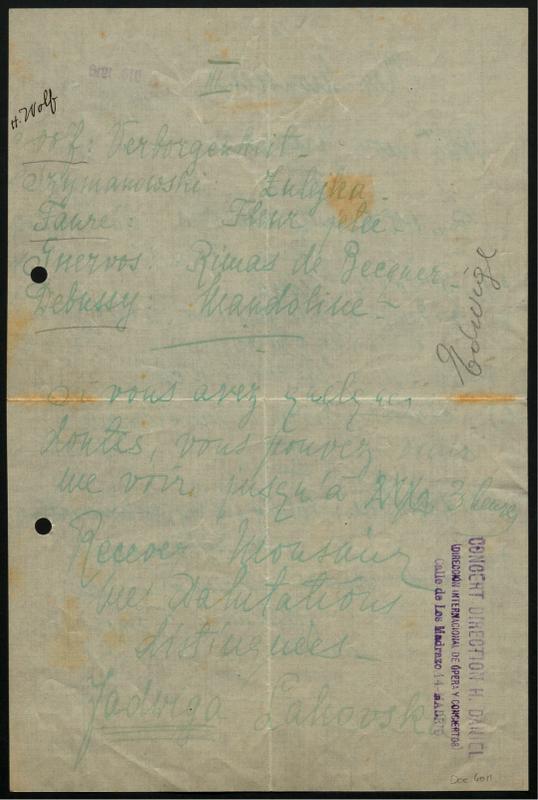 III
H. Wolf
Wolf: Verborgenheit –
Szymanowski: Zulejka –
Fauré: Fleur jetée
Tnervos: Rimas de Becquer –
Debussy: Mandoline –
Edwige
Si vous avez quelques
doutes, vous pouvez
me voir jusqu'à 3 heures
Recevez Monsieur
mes salutations
distinguées –
Jadwiga Lahovska
CONCERT DIRECTION H. DANIEL
(DIRECCIÓN INTERNACIONAL DE ÓPERA Y CONCIERTOS)
Calle de Los Madrazo 14-MADRID
Doc 6011